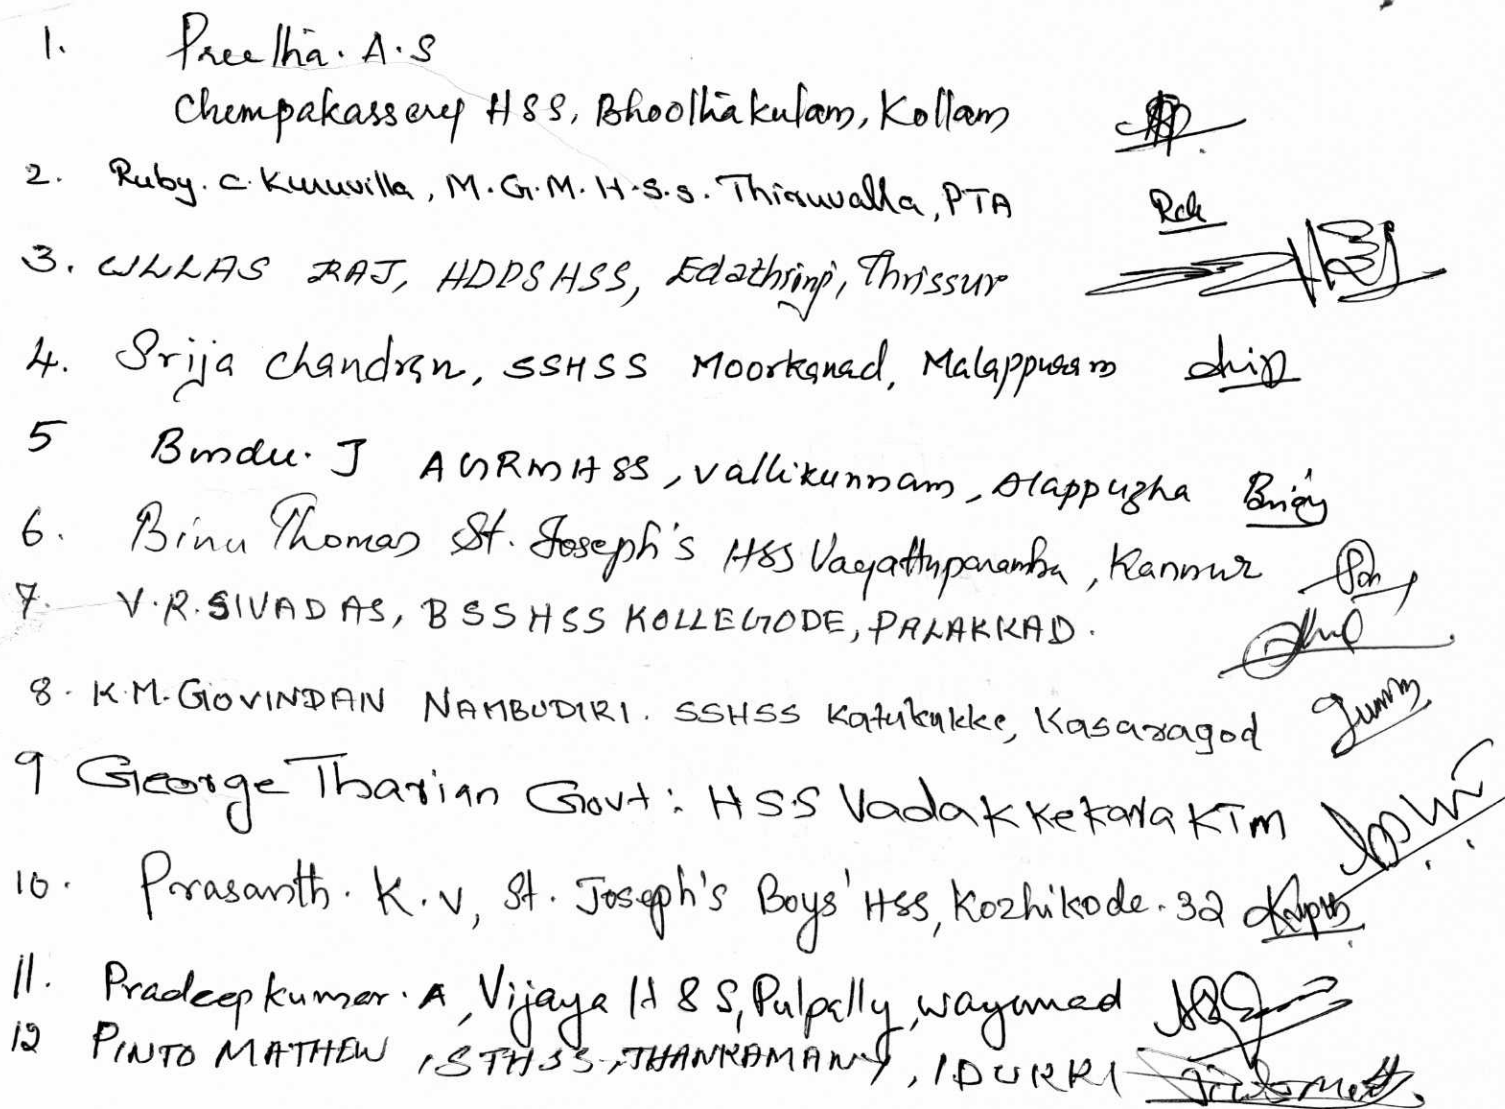 1. Preetha. A.S
Chempakassery HSS, Bhoothakulam, Kollam
2. Ruby. C. Kuruvilla, M.G.M.H.S.S. Thiruvalla, PTA
3. ULLAS RAJ, HDPSHSS, Edathirinji, Thrissur
4. Srija Chandran, SSHSS Moorkanad, Malappuram
5 Bindu. J AGRMHSS, Vallikunnam, Alappuzha
6. Binu Thomas St. Joseph's HSS Vayattuparamba, Kannur
7. V.R. SIVADAS, BSSHSS KOLLENGODE, PALAKKAD.
8. K.M. GOVINDAN NAMBUDIRI. SSHSS Katukukke, Kasaragod
9 George Tharian Govt: HSS Vadakkekara KTM
10. Prasanth. K.V, St. Joseph's Boys' HSS, Kozhikode. 32
11. Pradeepkumar. A, Vijaya HSS, Pulpally, wayanad
12 PINTO MATHEW, STHSS, THANKAMANY, IDUKKI